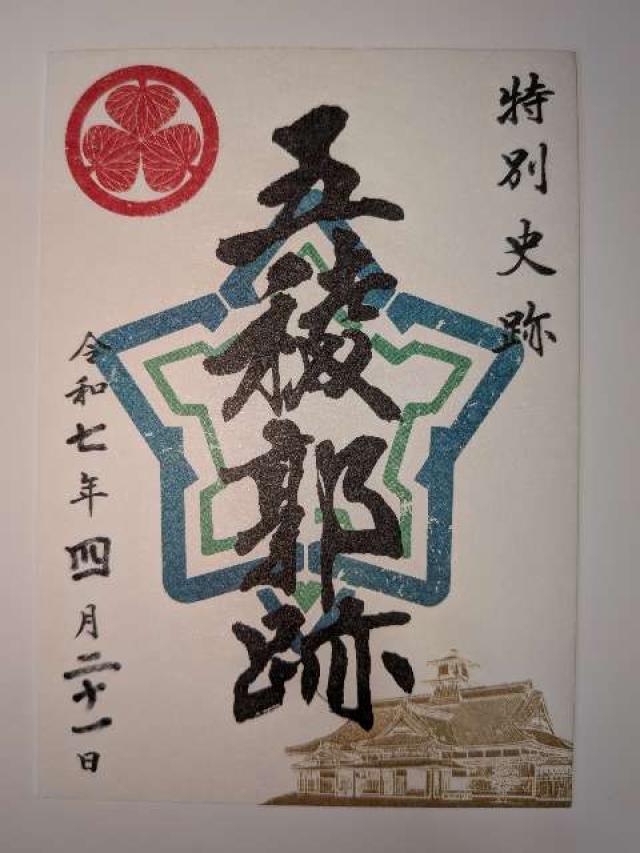 特別史跡
五稜郭跡
令和七年四月二十一日